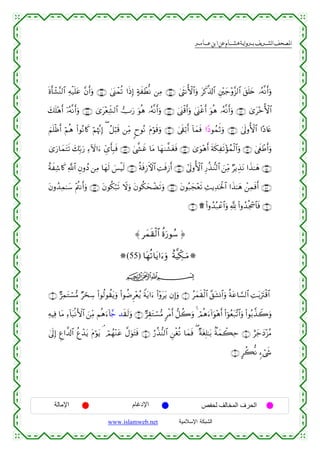 المصحف الشريف برواية هشام عن ابن عامر
وَأَنَّهُۥ خَلَقَ ٱلزَّوۡجَيۡنِ ٱلذَّكَرَ وَٱلۡأُنثَىٰ ۝ مِن نُّطۡفَةٍ إِذَا تُمۡنَىٰ ۝ وَأَنَّ عَلَيۡهِ ٱلنَّشۡأَةَ
ٱلۡأُخۡرَىٰ ۝ وَأَنَّهُۥ هُوَ أَغۡنَىٰ وَأَقۡنَىٰ ۝ وَأَنَّهُۥ هُوَ رَبُّ ٱلشِّعۡرَىٰ ۝ وَأَنَّهُۥٓ أَهۡلَكَ
عَادًا ٱلۡأُولَىٰ ۝ وَثَمُودًا فَمَآ أَبۡقَىٰ ۝ وَقَوۡمَ نُوحٖ مِّن قَبۡلُۖ إِنَّهُمۡ كَانُواْ هُمۡ أَظۡلَمَ
وَأَطۡغَىٰ ۝ وَٱلۡمُؤۡتَفِكَةَ أَهۡوَىٰ ۝ فَغَشَّىٰهَا مَا غَشَّىٰ ۝ فَبِأَيِّ ءَالَآءِ رَبِّكَ تَتَمَارَىٰ
۝ هَٰذَا نَذِيرٞ مِّنَ ٱلنُّذُرِ ٱلۡأُولَىٰٓ ۝ أَزِفَتِ ٱلۡأٓزِفَةُ ۝ لَيۡسَ لَهَا مِن دُونِ ٱللَّهِ كَاشِفَةٌ
۝ أَفَمِنۡ هَٰذَا ٱلۡحَدِيثِ تَعۡجَبُونَ ۝ وَتَضۡحَكُونَ وَلَا تَبۡكُونَ ۝ وَأَنتُمۡ سَٰمِدُونَ
۝ فَٱسۡجُدُواْ لِلَّهِ وَٱعۡبُدُواْ۩ ۝
﴿ سُورَةُ ٱلۡقَمَرِ ﴾
* مَكِّيَّةٌ وَءَايَاتُهَا (55) *
بِسۡمِ ٱللَّهِ ٱلرَّحۡمَٰنِ ٱلرَّحِيمِ
ٱقۡتَرَبَتِ ٱلسَّاعَةُ وَٱنشَقَّ ٱلۡقَمَرُ ۝ وَإِن يَرَوۡاْ ءَايَةٗ يُعۡرِضُواْ وَيَقُولُواْ سِحۡرٞ مُّسۡتَمِرّٞ ۝
وَكَذَّبُواْ وَٱتَّبَعُوٓاْ أَهۡوَآءَهُمۡۚ وَكُلُّ أَمۡرٖ مُّسۡتَقِرّٞ ۝ وَلَقَد جَّآءَهُم مِّنَ ٱلۡأَنۢبَآءِ مَا فِيهِ
مُزۡدَجَرٌ ۝ حِكۡمَةُۢ بَٰلِغَةٞۖ فَمَا تُغۡنِ ٱلنُّذُرُ ۝ فَتَوَلَّ عَنۡهُمۡۘ يَوۡمَ يَدۡعُ ٱلدَّاعِ إِلَىٰ
شَيۡءٖ نُّكُرٍ ۝
الحرف المخالف لحفص الإدغام الإمالة
الشبكة الإسلامية www.islamweb.net